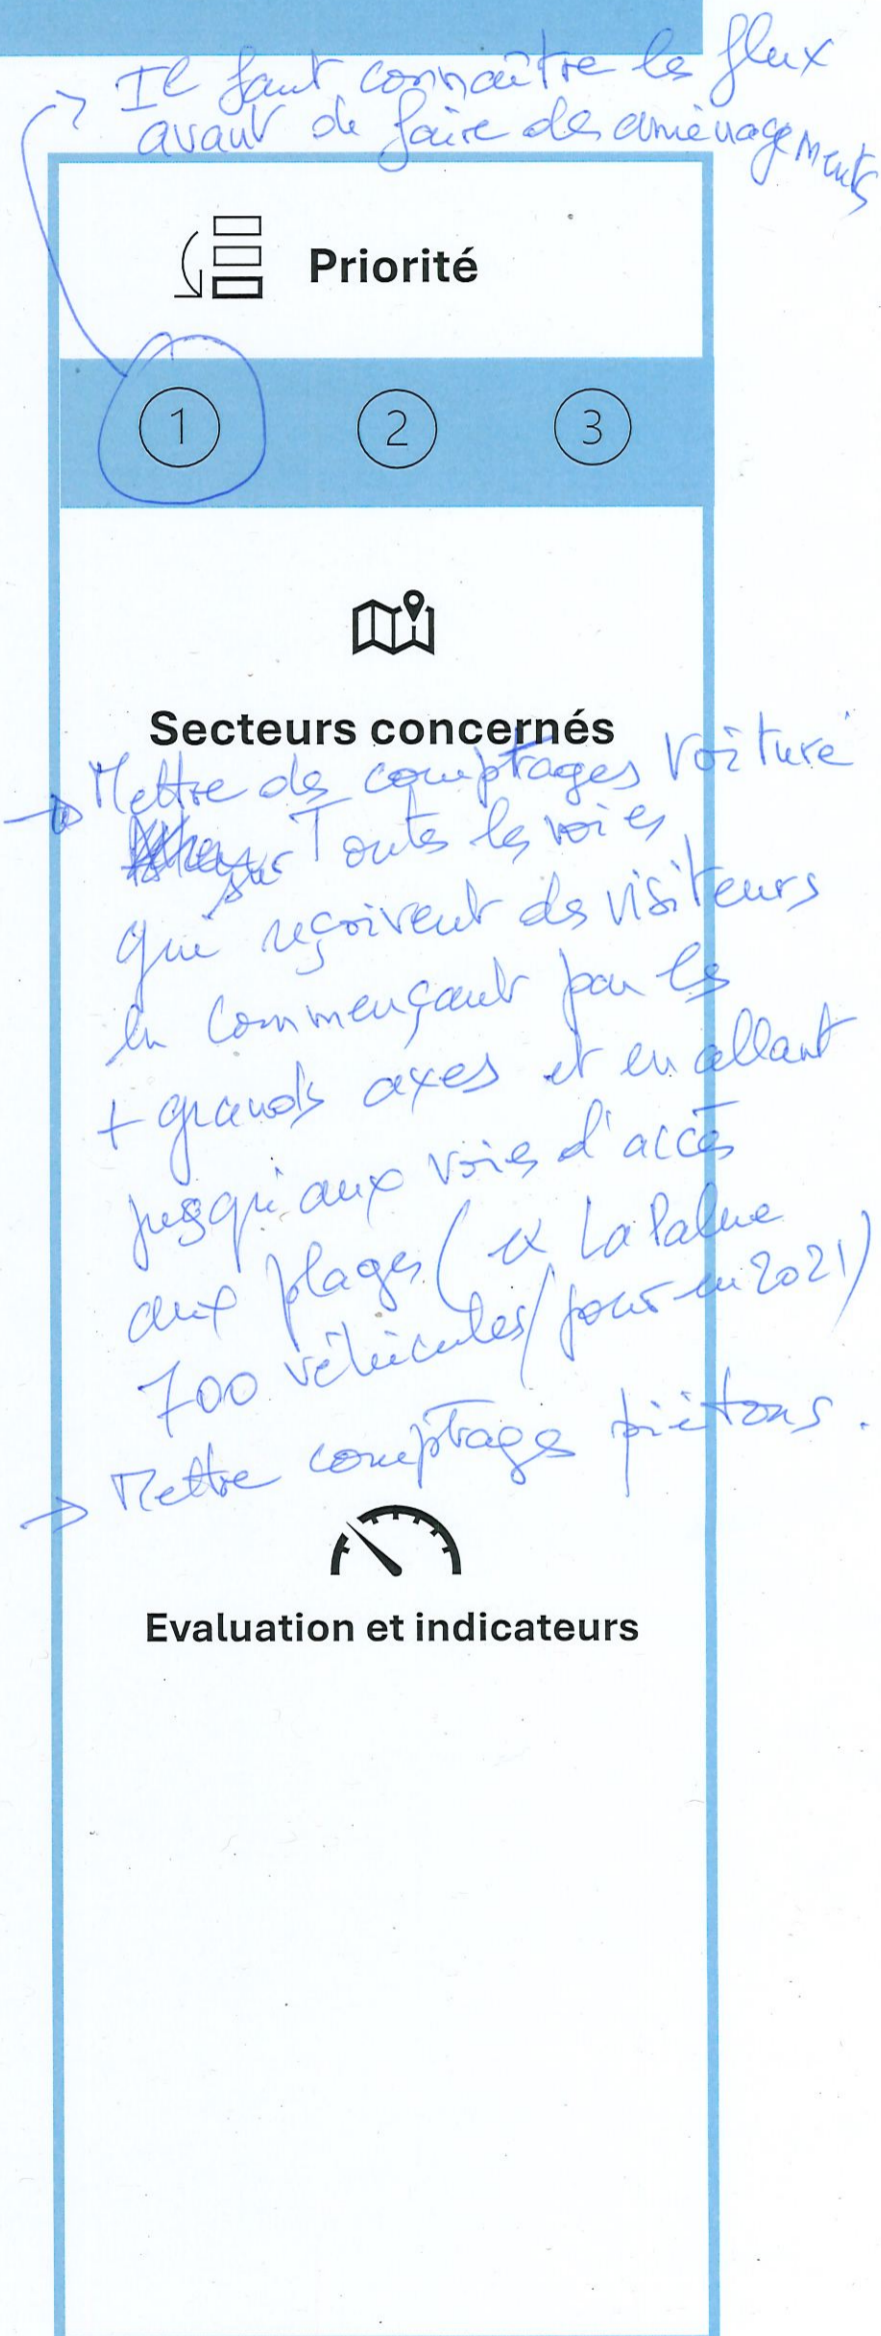 → Il faut connaître les flux
avant de faire des aménagements
Priorité
1 2 3
Secteurs concernés
→ Mettre des comptages voiture
sur Toutes les voies
qui reçoivent des visiteurs
en commençant par les
+ grands axes et en allant
jusqu'aux voies d'accès
aux plages (ex La Palue
700 véhicules/jour en 2021)
→ Mettre comptages piétons.
Evaluation et indicateurs